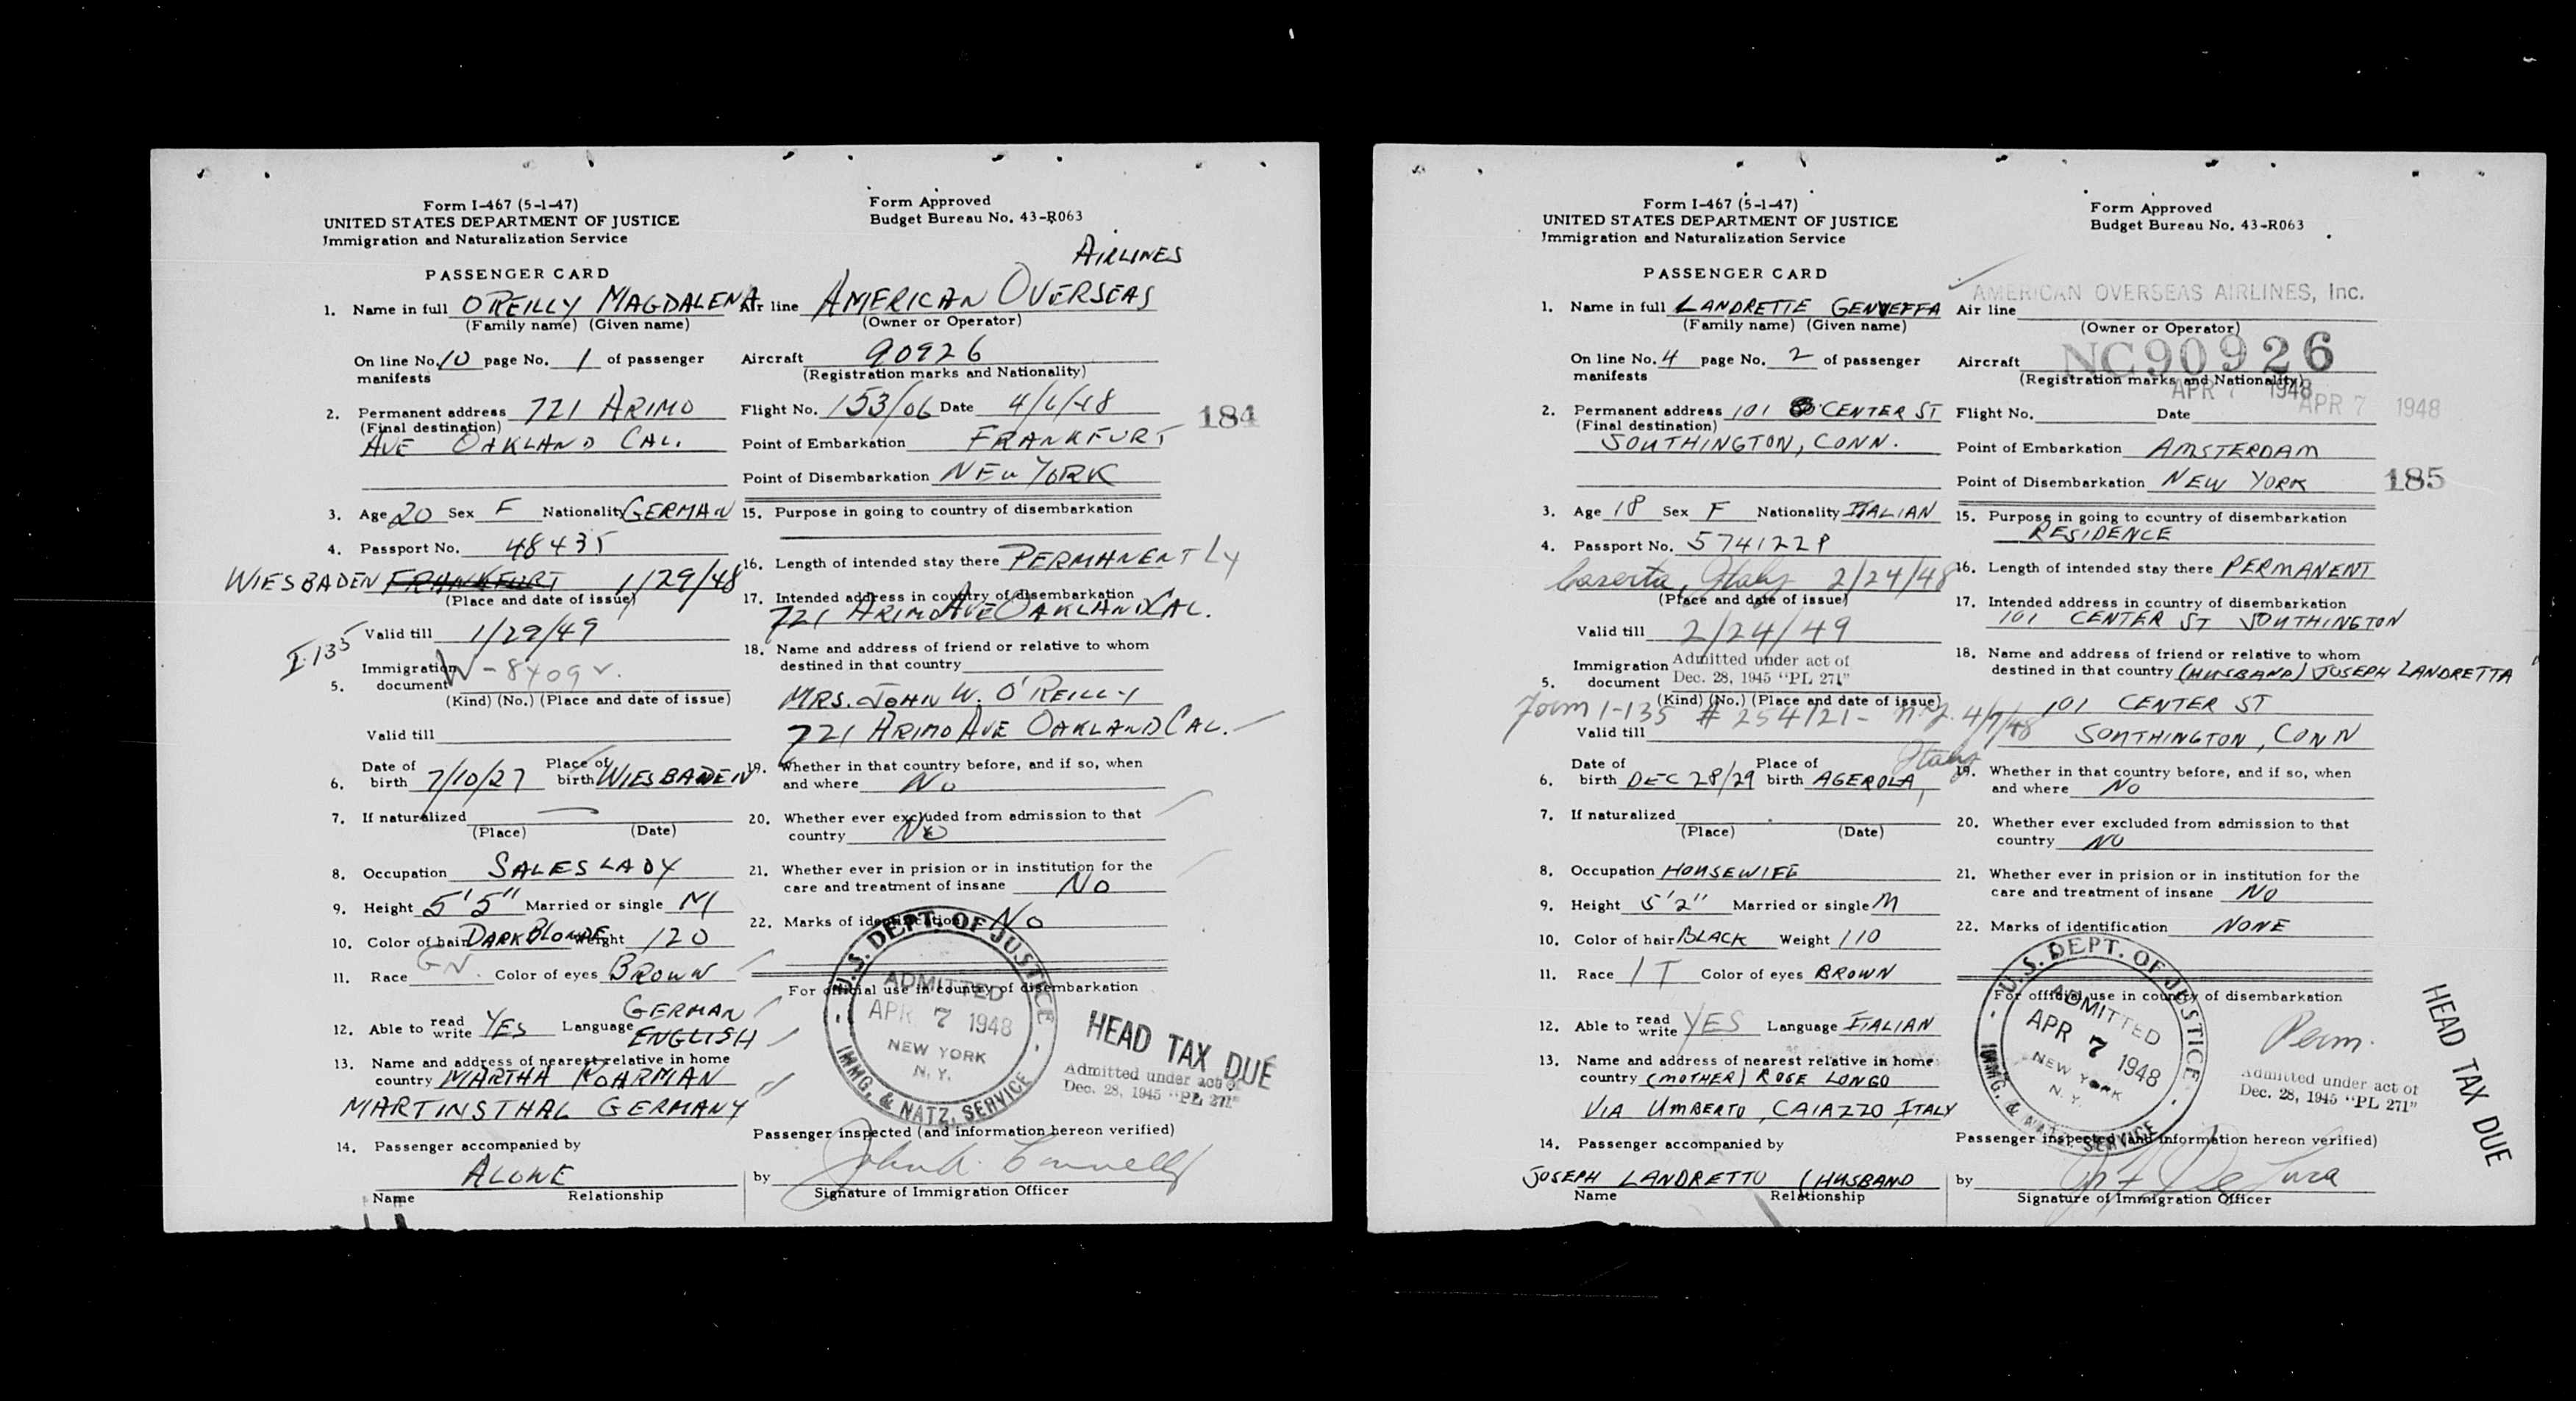 Form I-467 (5-1-47)
UNITED STATES DEPARTMENT OF JUSTICE
Immigration and Naturalization Service
Form Approved
Budget Bureau No. 43-R063
PASSENGER CARD
AIRLINES
1. Name in full OREILLY MAGDALENA
(Family name) (Given name)
Air line AMERICAN OVERSEAS
(Owner or Operator)
On line No. 10 page No. 1 of passenger
manifests
Aircraft 90926
(Registration marks and Nationality)
2. Permanent address 721 ARIMO
(Final destination)
AVE OAKLAND CAL.
Flight No. 153/06 Date 4/6/48
184
Point of Embarkation FRANKFURT
Point of Disembarkation NEW YORK
3. Age 20 Sex F Nationality GERMAN
4. Passport No. 48435
WIESBADEN FRANKFURT 1/29/48
(Place and date of issue)
Valid till 1/29/49
I-135
5. Immigration
document
(Kind) (No.) (Place and date of issue)
Valid till
6. Date of birth 7/10/27 Place of birth WIESBADEN
7. If naturalized
(Place) (Date)
8. Occupation SALESLADY
9. Height 5'5" Married or single M
10. Color of hair DARK BLONDE Weight 120
11. Race GN. Color of eyes BROWN
12. Able to read write YES Language GERMAN
ENGLISH
13. Name and address of nearest relative in home
country MARTHA
MARTINSTHAL GERMANY
14. Passenger accompanied by
ALONE
Name Relationship
15. Purpose in going to country of disembarkation
16. Length of intended stay there PERMANENTLY
17. Intended address in country of disembarkation
721 ARIMO AVE OAKLAND CAL.
18. Name and address of friend or relative to whom
destined in that country
MRS. JOHN W. O'REILLY
721 ARIMO AVE OAKLAND CAL.
19. Whether in that country before, and if so, when
and where NO
20. Whether ever excluded from admission to that
country NO
21. Whether ever in prision or in institution for the
care and treatment of insane NO
22. Marks of identification NO
For official use in country of disembarkation
U.S. DEPT. OF JUSTICE
ADMITTED
APR 7 1948
NEW YORK
N. Y.
IMMG. & NATZ. SERVICE
HEAD TAX DUE
Admitted under act of
Dec. 28, 1945 "PL 271"
Passenger inspected (and information hereon verified)
by
Signature of Immigration Officer
Form I-467 (5-1-47)
UNITED STATES DEPARTMENT OF JUSTICE
Immigration and Naturalization Service
Form Approved
Budget Bureau No. 43-R063
PASSENGER CARD
1. Name in full LANDRETTE GENVEFFA
(Family name) (Given name)
AMERICAN OVERSEAS AIRLINES, Inc.
Air line
(Owner or Operator)
On line No. 4 page No. 2 of passenger
manifests
Aircraft NC90926
(Registration marks and Nationality)
APR 7 1948
APR 7 1948
2. Permanent address 101 CENTER ST
(Final destination)
SOUTHINGTON, CONN.
Flight No. Date
Point of Embarkation AMSTERDAM
Point of Disembarkation NEW YORK
185
3. Age 18 Sex F Nationality ITALIAN
4. Passport No. 574122P
Caserta, Italy 2/24/48
(Place and date of issue)
Valid till 2/24/49
5. Immigration
document
Admitted under act of
Dec. 28, 1945 "PL 271"
(Kind) (No.) (Place and date of issue)
Form I-135 # 254121- N.Y. 4/7/48
Valid till
6. Date of birth DEC 28/29 Place of birth AGEROLA, Italy
7. If naturalized
(Place) (Date)
8. Occupation HOUSEWIFE
9. Height 5'2" Married or single M
10. Color of hair BLACK Weight 110
11. Race IT Color of eyes BROWN
12. Able to read write YES Language ITALIAN
13. Name and address of nearest relative in home
country (MOTHER) ROSE LONGO
VIA UMBERTO, CAIAZZO ITALY
14. Passenger accompanied by
JOSEPH LANDRETTO (HUSBAND
Name Relationship
15. Purpose in going to country of disembarkation
RESIDENCE
16. Length of intended stay there PERMANENT
17. Intended address in country of disembarkation
101 CENTER ST SOUTHINGTON
18. Name and address of friend or relative to whom
destined in that country (HUSBAND) JOSEPH LANDRETTA
101 CENTER ST
SOUTHINGTON, CONN
19. Whether in that country before, and if so, when
and where NO
20. Whether ever excluded from admission to that
country NO
21. Whether ever in prision or in institution for the
care and treatment of insane NO
22. Marks of identification NONE
For official use in country of disembarkation
U.S. DEPT. OF JUSTICE
ADMITTED
APR 7 1948
NEW YORK
N. Y.
IMMG. & NATZ. SERVICE
Perm.
HEAD TAX DUE
Admitted under act of
Dec. 28, 1945 "PL 271"
Passenger inspected (and information hereon verified)
by
Signature of Immigration Officer